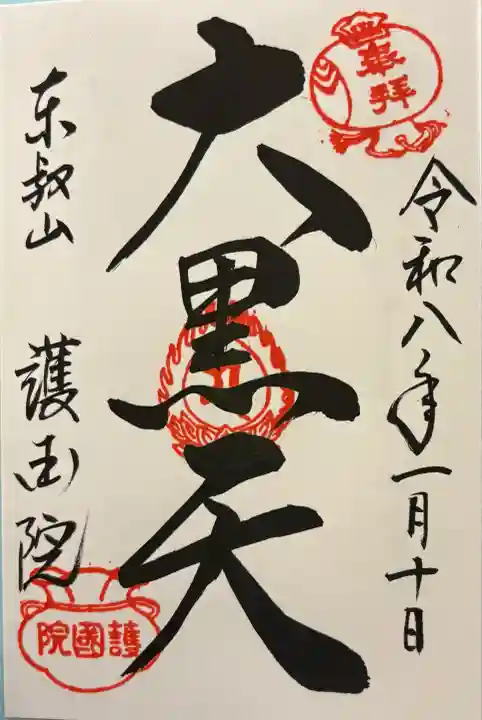 奉拝
令和八年一月十日
大黒天
东叡山 護国院
護國院